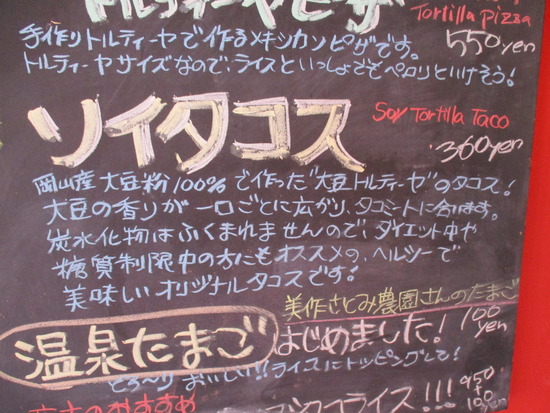 トルティーヤピザ
Tortilla Pizza
550yen
手作りトルティーヤで作るメキシカンピザです。
トルティーヤサイズなので、ライスといっしょでもペロリといけそう!
ソイタコス
Soy Tortilla Taco
360yen
岡山産大豆粉100%で作った"大豆トルティーヤ"のタコス!
大豆の香りが一口ごとに広がり、タコミートに合います。
炭水化物はふくまれませんので、ダイエット中や
糖質制限中の方にもオススメの、ヘルシーで
美味しいオリジナルタコスです!
美作さとみ農園さんのたまご
温泉たまご はじめました! 100yen
とろ〜りおいしい!!ライスにトッピングして!
店主のおすすめ
タコライス!!! 950
100yen